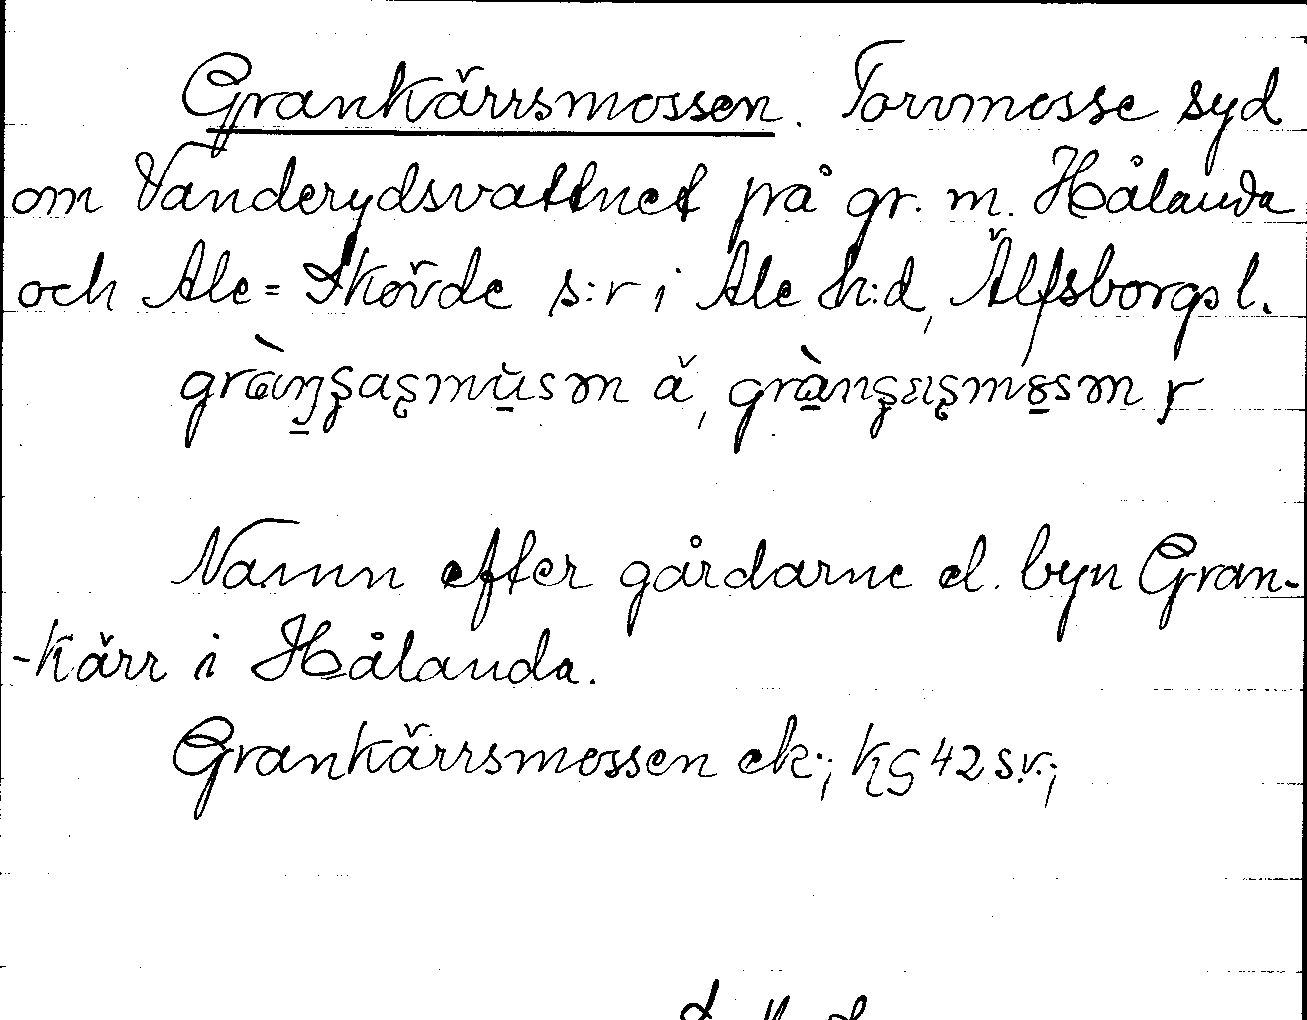 Grankärrsmossen. Torvmosse syd
om Vanderydsvattnet på gr. m. Hålanda
och Ale=Skövde s:r i Ale h:d, Älfsborgs l.
Namn efter gårdarne el. byn Gran-
-kärr i Hålanda.
Grankärrsmossen ek.; KG 42 s.v.;